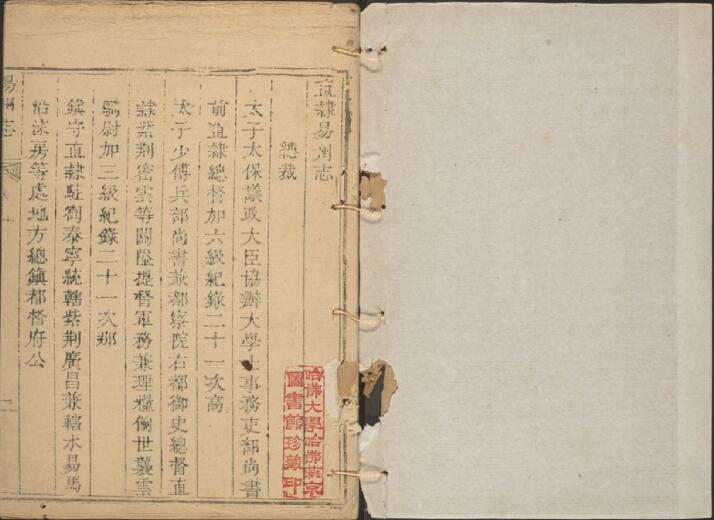 直隸易州志
總裁
太子太保議政大臣協辦大學士事務吏部尚書
前直隸總督加六級紀錄二十一次高
太子少傅兵部尚書兼都察院右都御史總督直
隸紫荊密雲等關隘提督軍務兼理糧餉世襲雲
騎尉加三級紀錄二十一次那
鎮守直隸駐劄泰寧統轄紫荊廣昌兼轄水易馬
沿淶房等處地方總鎮都督府公
易州志
哈佛大學哈佛燕京
圖書館珍藏印